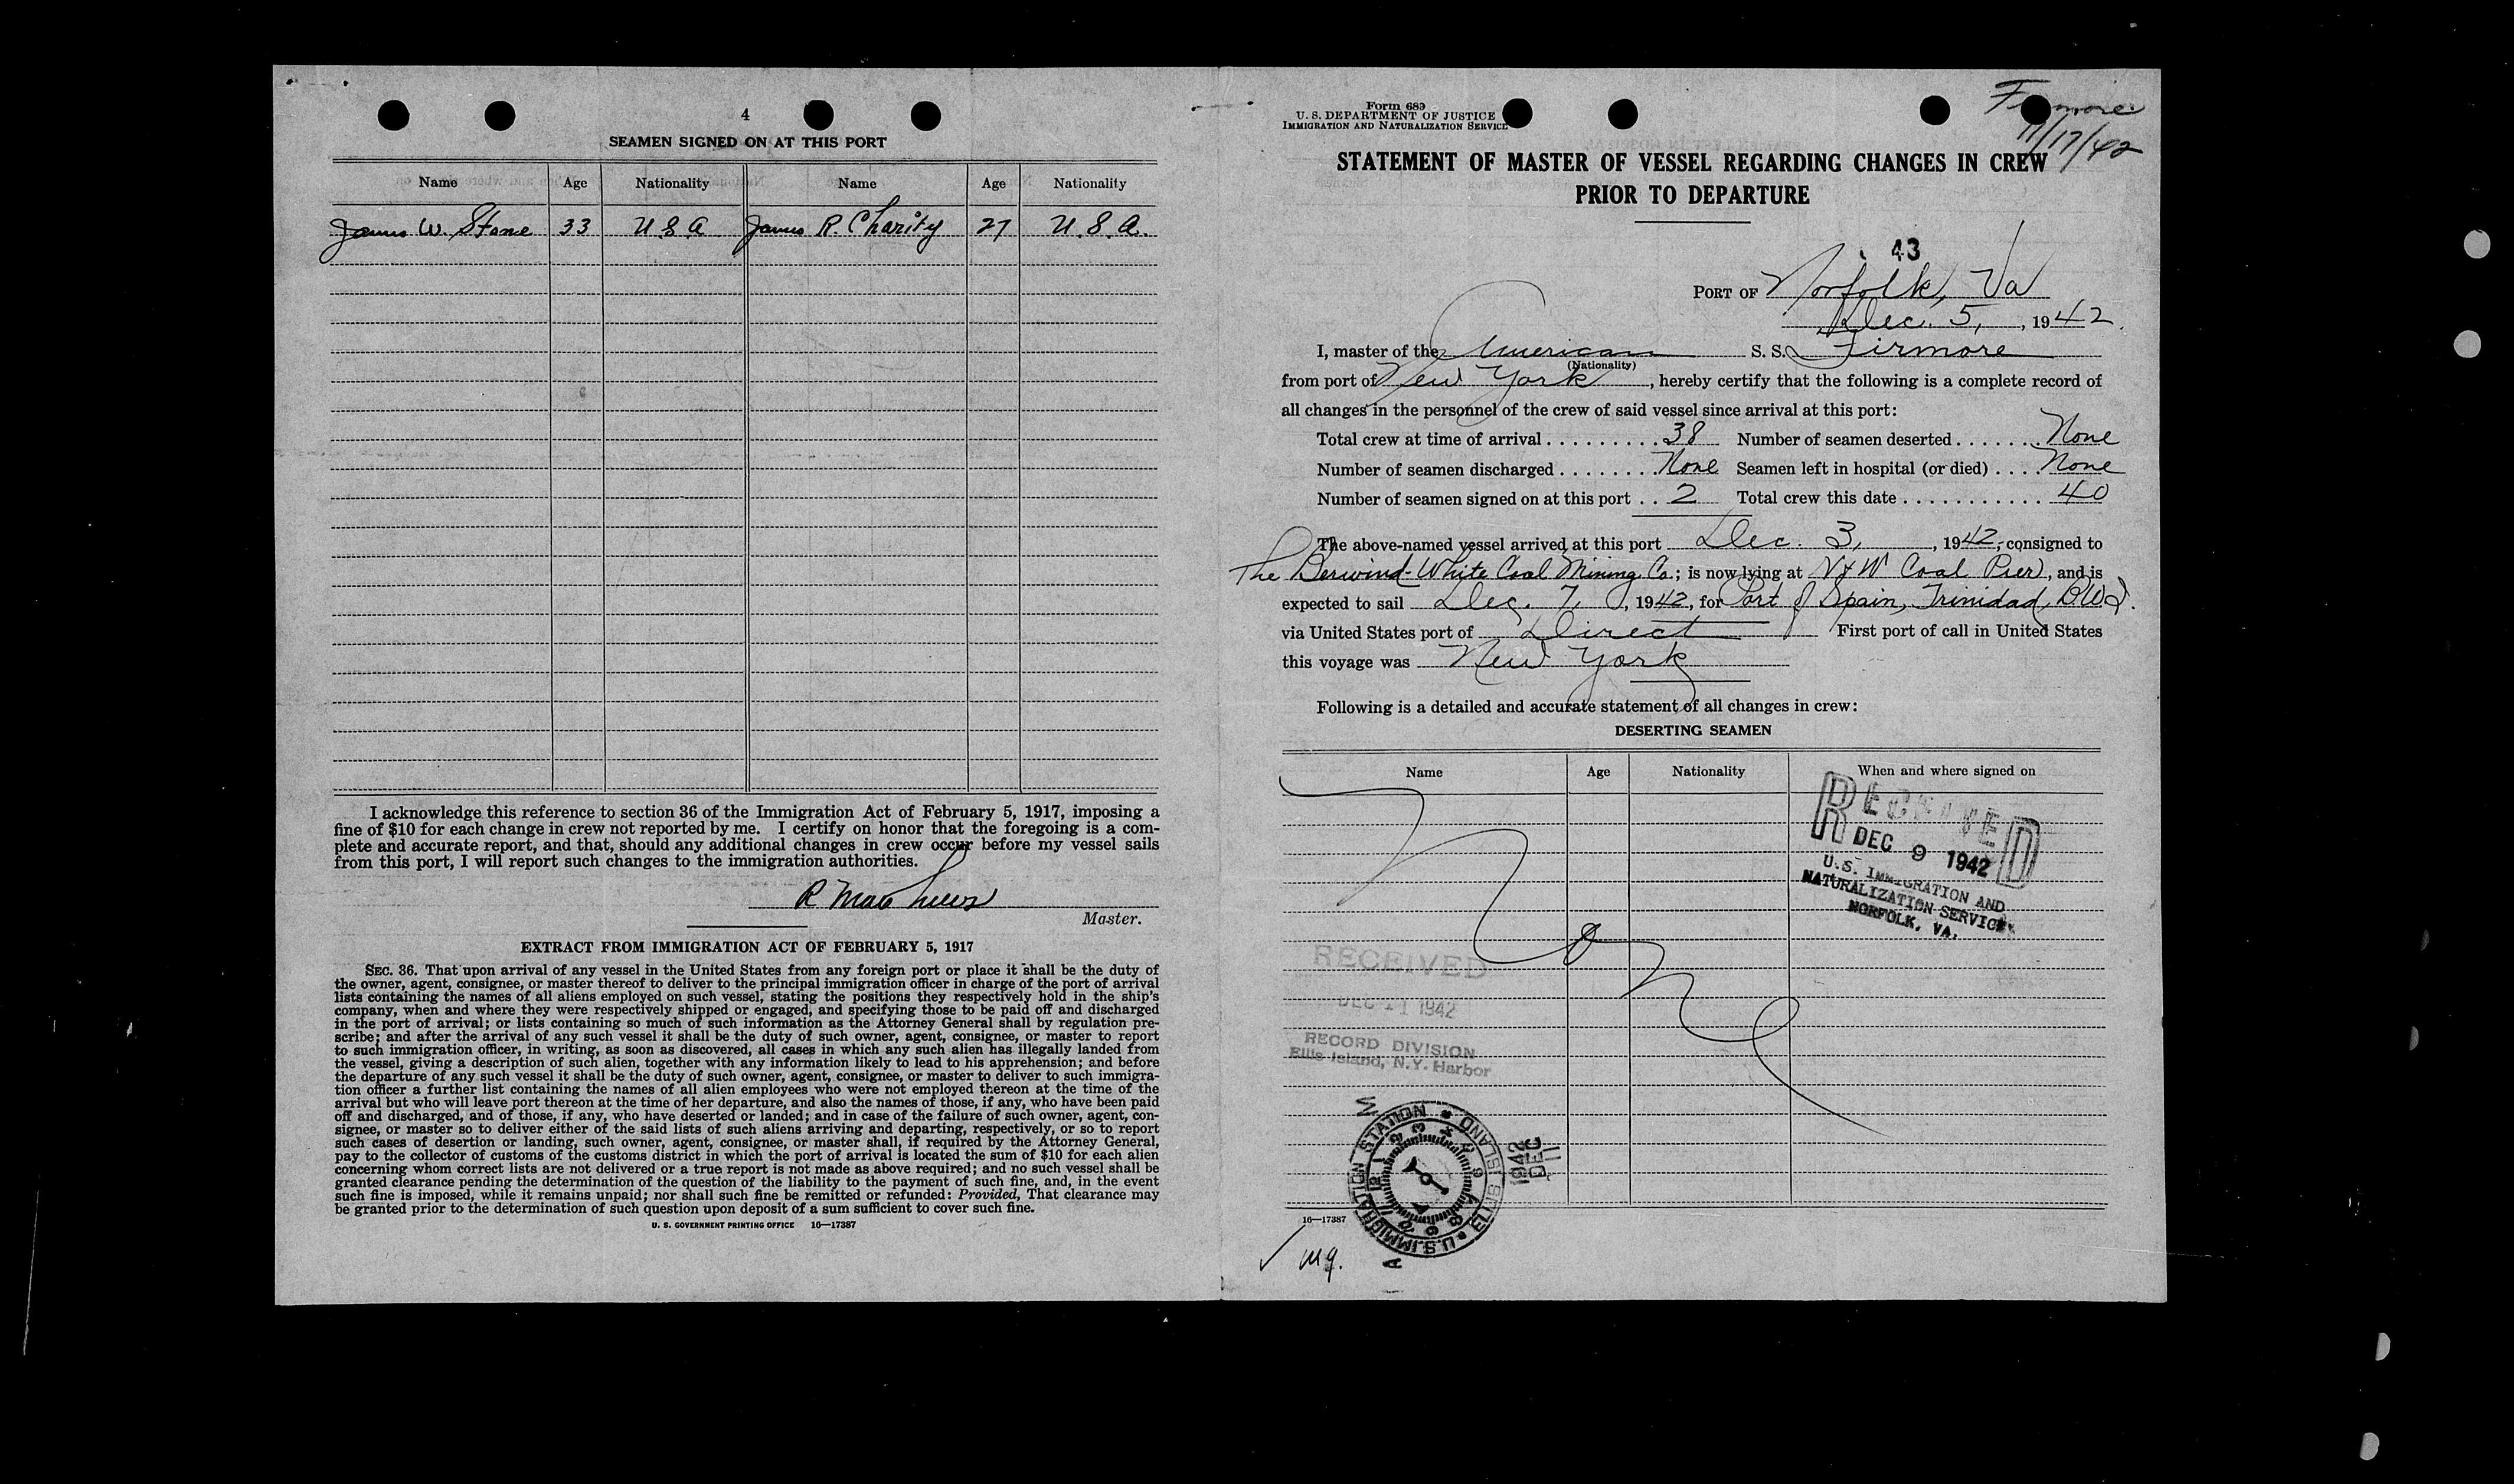 4
SEAMEN SIGNED ON AT THIS PORT
Name Age Nationality Name Age Nationality
James W. Stone 33 U S A James R. Charity 27 U.S.A.
I acknowledge this reference to section 36 of the Immigration Act of February 5, 1917, imposing a
fine of $10 for each change in crew not reported by me. I certify on honor that the foregoing is a com-
plete and accurate report, and that, should any additional changes in crew occur before my vessel sails
from this port, I will report such changes to the immigration authorities.
R
Master.
EXTRACT FROM IMMIGRATION ACT OF FEBRUARY 5, 1917
SEC. 36. That upon arrival of any vessel in the United States from any foreign port or place it shall be the duty of
the owner, agent, consignee, or master thereof to deliver to the principal immigration officer in charge of the port of arrival
lists containing the names of all aliens employed on such vessel, stating the positions they respectively hold in the ship's
company, when and where they were respectively shipped or engaged, and specifying those to be paid off and discharged
in the port of arrival; or lists containing so much of such information as the Attorney General shall by regulation pre-
scribe; and after the arrival of any such vessel it shall be the duty of such owner, agent, consignee, or master to report
to such immigration officer, in writing, as soon as discovered, all cases in which any such alien has illegally landed from
the vessel, giving a description of such alien, together with any information likely to lead to his apprehension; and before
the departure of any such vessel it shall be the duty of such owner, agent, consignee, or master to deliver to such immigra-
tion officer a further list containing the names of all alien employees who were not employed thereon at the time of the
arrival but who will leave port thereon at the time of her departure, and also the names of those, if any, who have been paid
off and discharged, and of those, if any, who have deserted or landed; and in case of the failure of such owner, agent, con-
signee, or master so to deliver either of the said lists of such aliens arriving and departing, respectively, or so to report
such cases of desertion or landing, such owner, agent, consignee, or master shall, if required by the Attorney General,
pay to the collector of customs of the customs district in which the port of arrival is located the sum of $10 for each alien
concerning whom correct lists are not delivered or a true report is not made as above required; and no such vessel shall be
granted clearance pending the determination of the question of the liability to the payment of such fine, and, in the event
such fine is imposed, while it remains unpaid; nor shall such fine be remitted or refunded: Provided, That clearance may
be granted prior to the determination of such question upon deposit of a sum sufficient to cover such fine.
U. S. GOVERNMENT PRINTING OFFICE 16—17387
Form 689
U. S. DEPARTMENT OF JUSTICE
IMMIGRATION AND NATURALIZATION SERVICE
11/17/42
STATEMENT OF MASTER OF VESSEL REGARDING CHANGES IN CREW
PRIOR TO DEPARTURE
43
PORT OF Norfolk, Va
Dec. 5, , 1942.
I, master of the American S. S. Firmore
(Nationality)
from port of New York, hereby certify that the following is a complete record of
all changes in the personnel of the crew of said vessel since arrival at this port:
Total crew at time of arrival . . . . . . . . . 38 Number of seamen deserted . . . . . . . None
Number of seamen discharged . . . . . . . None Seamen left in hospital (or died) . . . . None
Number of seamen signed on at this port . . 2 Total crew this date . . . . . . . . . . . 40
The above-named vessel arrived at this port Dec. 3, , 1942, consigned to
The Berwind-White Coal Mining Co.; is now lying at N & W Coal Pier, and is
expected to sail Dec. 7, , 1942, for Port of Spain, Trinidad, B.W.I.
via United States port of Direct First port of call in United States
this voyage was New York
Following is a detailed and accurate statement of all changes in crew:
DESERTING SEAMEN
Name Age Nationality When and where signed on
None
RECEIVED
DEC 9 1942
U.S. IMMIGRATION AND
NATURALIZATION SERVICE
NORFOLK, VA.
RECEIVED
DEC 11 1942
RECORD DIVISION
Ellis Island, N.Y. Harbor
U.S. IMMIGRATION STATION * ELLIS ISLAND
1942
DEC
11
M
A
16—17387